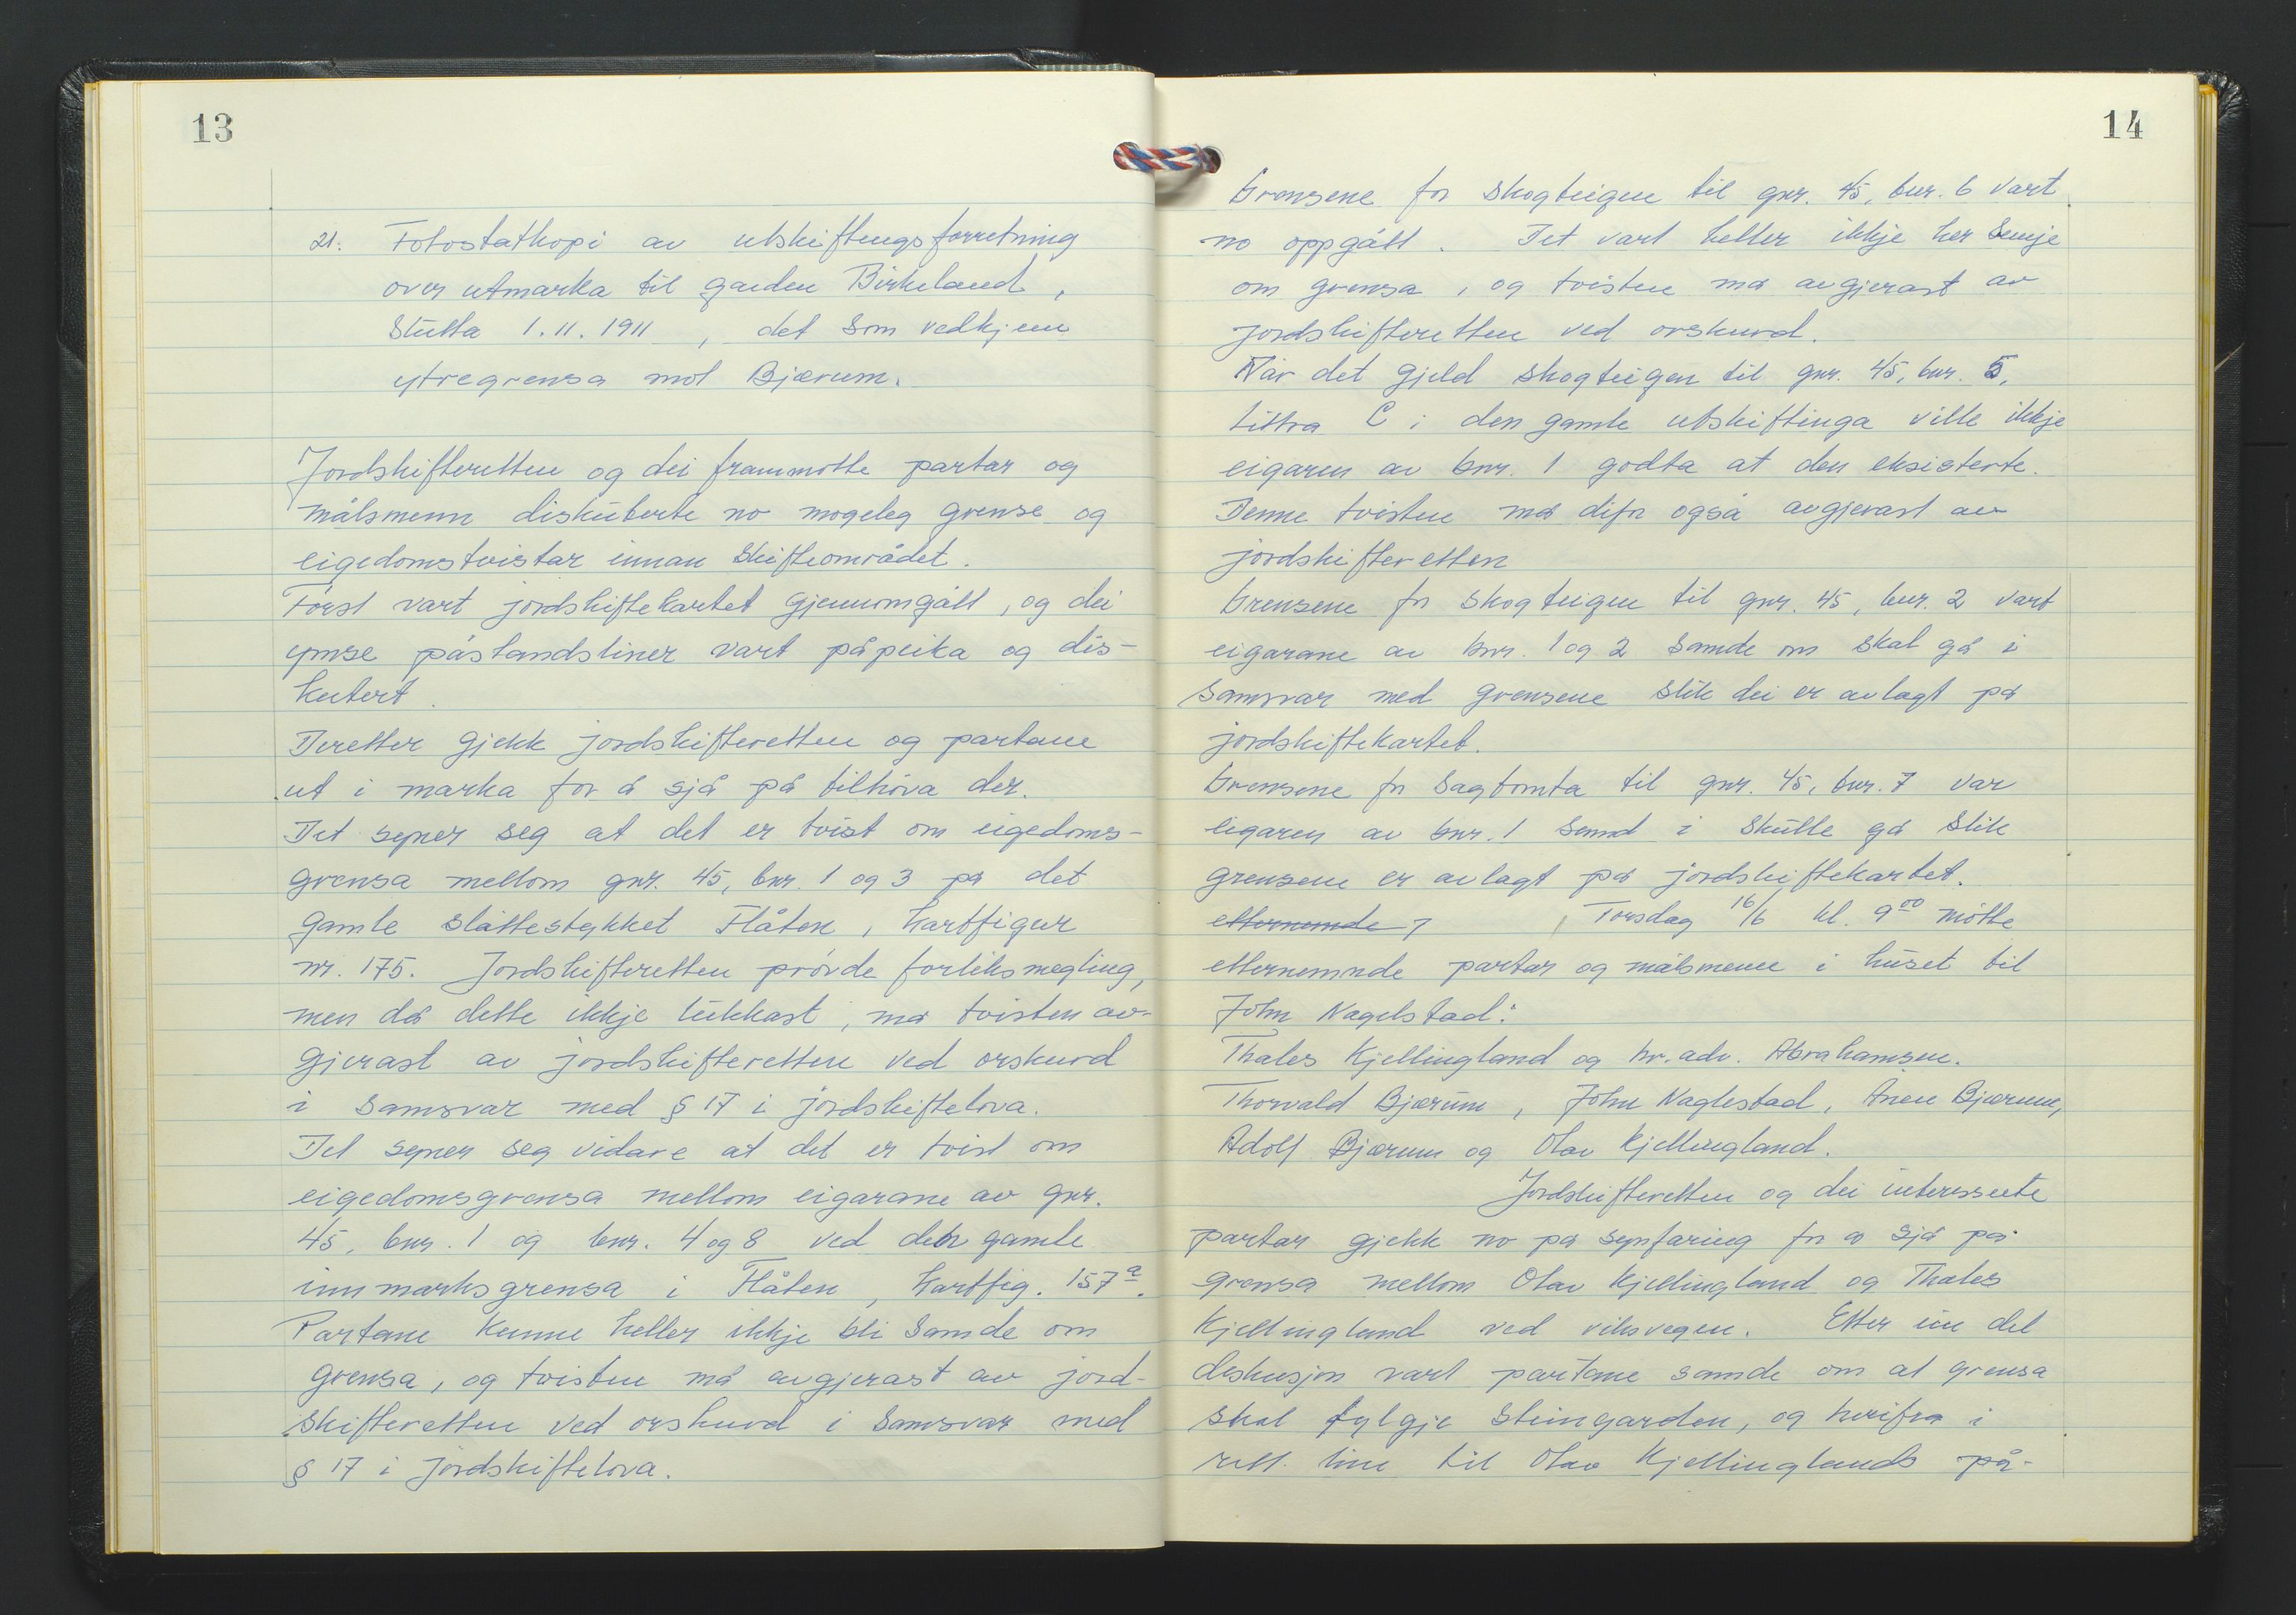 13
21. Fotostatkopi av utskiftingsforretning
over utmarka til garden Birkeland,
slutta 1.11.1911, det som vedkjem
ytregrensa mot Bjærum.
Jordskifteretten og dei frammøtte partar og
målsmenn diskuterte no mogeleg grense og
eigedomstvistar innan skifteområdet.
Først vart jordskiftekartet gjennomgått, og dei
ymse påstandsliner vart påpeika og dis-
kutert.
Deretter gjekk jordskifteretten og partane
ut i marka for å sjå på tilhøva der.
Det syner seg at det er tvist om eigedoms-
grensa mellom gnr. 45, bnr. 1 og 3 på det
gamle slåttestykket Flåten, kartfigur
nr. 175. Jordskifteretten prøvde forliksmegling,
men då dette ikkje lukkast, må tvisten av-
gjerast av jordskifteretten ved orskurd
i samsvar med § 17 i jordskiftelova.
Det syner seg vidare at det er tvist om
eigedomsgrensa mellom eigarane av gnr.
45, bnr. 1 og bnr. 4 og 8 ved den gamle
innmarksgrensa i Flåten, kartfig. 157a.
Partane kunne heller ikkje bli samde om
grensa, og tvisten må avgjerast av jord-
skifteretten ved orskurd i samsvar med
§ 17 i jordskiftelova.
14
Grensene for skogteigen til gnr. 45, bnr. 6 vart
no oppgått. Det vart heller ikkje her semje
om grensa, og tvisten må avgjerast av
jordskifteretten ved orskurd.
Når det gjeld skogteigen til gnr. 45, bnr. 5,
littra C i den gamle utskiftinga ville ikkje
eigaren av bnr. 1 godta at den eksisterte.
Denne tvisten må difor også avgjerast av
jordskifteretten
Grensene for skogteigen til gnr. 45, bnr. 2 vart
eigarane av bnr. 1 og 2 samde om skal gå i
samsvar med grensene slik dei er avlagt på
jordskiftekartet.
Grensene for sagtomta til gnr. 45, bnr. 7 var
eigaren av bnr. 1 samd i skulle gå slik
grensene er avlagt på jordskiftekartet.
etternemde, Torsdag 16/6 kl. 900 møtte
etternemnde partar og målsmenn i huset til
John Nagelstad:
Thales Kjellingland og hr. adv. Abrahamsen.
Thorvald Bjærum, John Naglestad, Anen Bjærum,
Adolf Bjærum og Olav Kjellingland.
Jordskifteretten og dei interesserte
partar gjekk no på synfaring for å sjå på
grensa mellom Olav Kjellingland og Thales
Kjellingland ved viksvegen. Etter ein del
diskusjon vart partane samde om at grensa
skal fylgje steingarden, og herifra i
rett line til Olav Kjellinglands på-